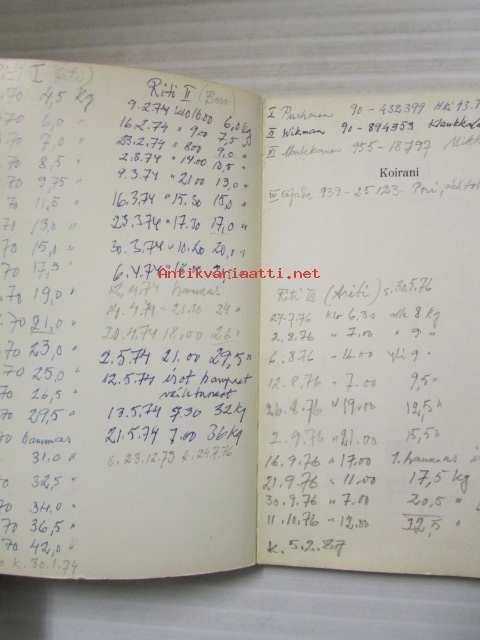 Riti I
70 4,5 kg
70 6,0 "
70 7,0 "
70 8,5 "
70 9,75 "
70 11,5 "
70 13,0 "
70 15,1 "
70 17,3 "
.70 19,0 "
70 21,0 "
70 23,0 "
70 25,0 "
70 26,5 "
70 29,5 "
70 hammas
31.0 "
70 32,5 "
70 34.0 "
70 36,5 "
70 42,0 "
k. 30.1.74
Riti II
9.2.74 klo 16.00 6,0 kg
16.2.74 " 9.00 7,5 "
23.2.74 " 8.00 9,0 "
2.3.74 " 14.00 10.5 "
9.3.74 " 21.00 13,0 "
16.3.74 " 15.30 15,0 "
23.3.74 " 17.30 17,0 "
30.3.74 " 10.20 20,0 "
6.4.74 " 18.00
Antikvariaatti.net
12.4.74 hammas
19.4.74 - 21.30 24 "
18,00 26
2.5.74 21.00 29,5 "
12.5.74 isot hampaat
13.5.74 5.30 32 kg
21.5.74 7.00 36 kg
s. 23.12.73
I 90 - 432399
II Wikman 90 - 894353 Klaukkala
III 955 - 18797
Koirani
939 - 25123 Pori
Riti III (Ariti) s. 30.5.76
27.7.76 klo 6.30 8 kg
2.8.76 " 7.00 " 9 "
6.8.76 yli 9 "
12.8.76 " 7.00 9,5 "
26.8.76 " 19.00 12,5 "
2.9.76 " 21.00 15,5 "
16.9.76 " 17.00 1. hammas
21.9.76 " 11.00 17,5 kg
30.9.76 " 7.00 20,5 "
11.10.76 " 12.00 32,5 "
k. 5.2.87